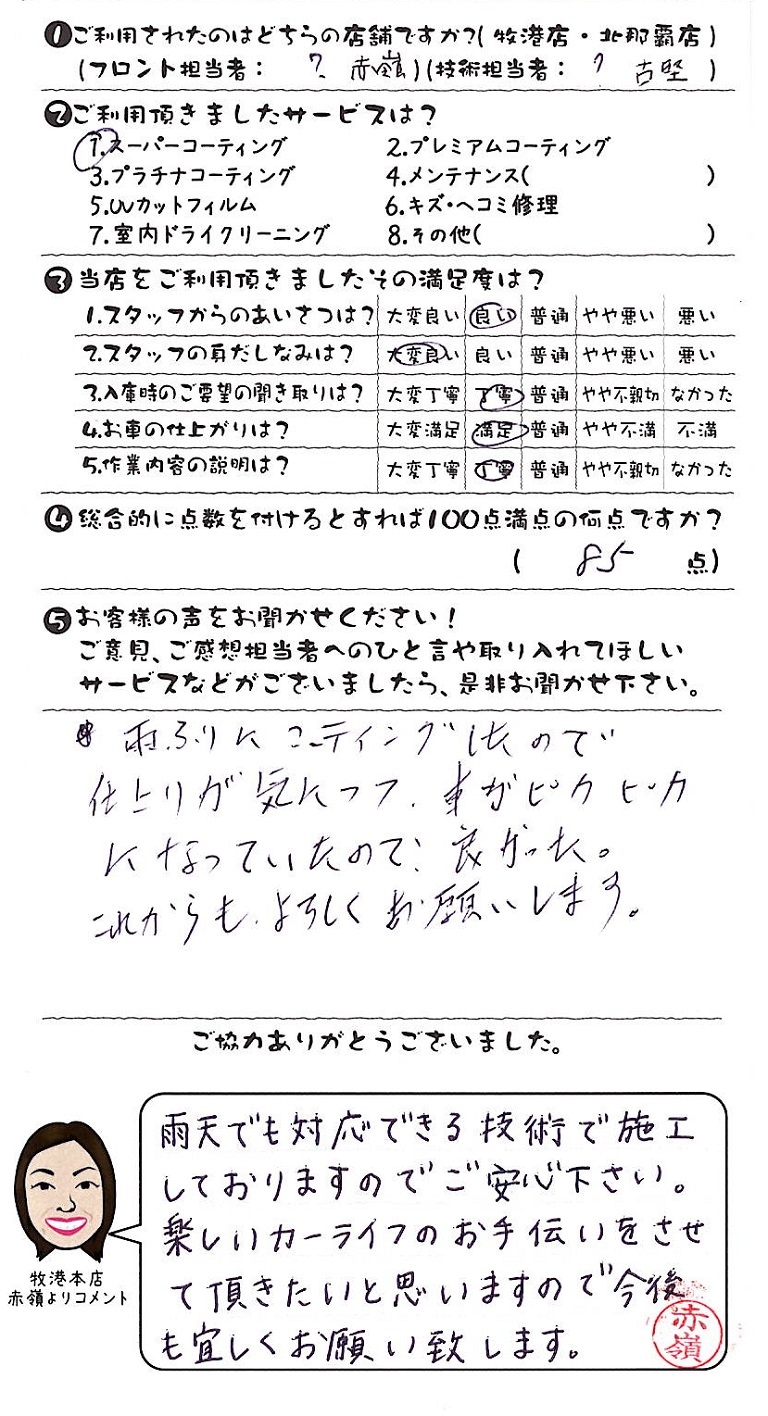 ❶ご利用されたのはどちらの店舗ですか?(牧港店・北那覇店)
(フロント担当者: ? 赤嶺)(技術担当者: ? 古堅)
❷ご利用頂きましたサービスは?
1.スーパーコーティング 2.プレミアムコーティング
3.プラチナコーティング 4.メンテナンス( )
5.UVカットフィルム 6.キズ・ヘコミ修理
7.室内ドライクリーニング 8.その他( )
❸当店をご利用頂きましたその満足度は?
1.スタッフからのあいさつは? 大変良い 良い 普通 やや悪い 悪い
2.スタッフの身だしなみは? 大変良い 良い 普通 やや悪い 悪い
3.入庫時のご要望の聞き取りは? 大変丁寧 丁寧 普通 やや不親切 なかった
4.お車の仕上がりは? 大変満足 満足 普通 やや不満 不満
5.作業内容の説明は? 大変丁寧 丁寧 普通 やや不親切 なかった
❹総合的に点数を付けるとすれば100点満点の何点ですか?
( 85 点)
❺お客様の声をお聞かせください!
ご意見、ご感想担当者へのひと言や取り入れてほしい
サービスなどがございましたら、是非お聞かせ下さい。
雨ふりにコーティングしたので
仕上りが気になって、車がピカピカ
になっていたので、良かった。
これからも、よろしくお願いします。
ご協力ありがとうございました。
雨天でも対応できる技術で施工
しておりますのでご安心下さい。
楽しいカーライフのお手伝いをさせ
て頂きたいと思いますので今後
も宜しくお願い致します。
赤嶺
牧港本店
赤嶺よりコメント